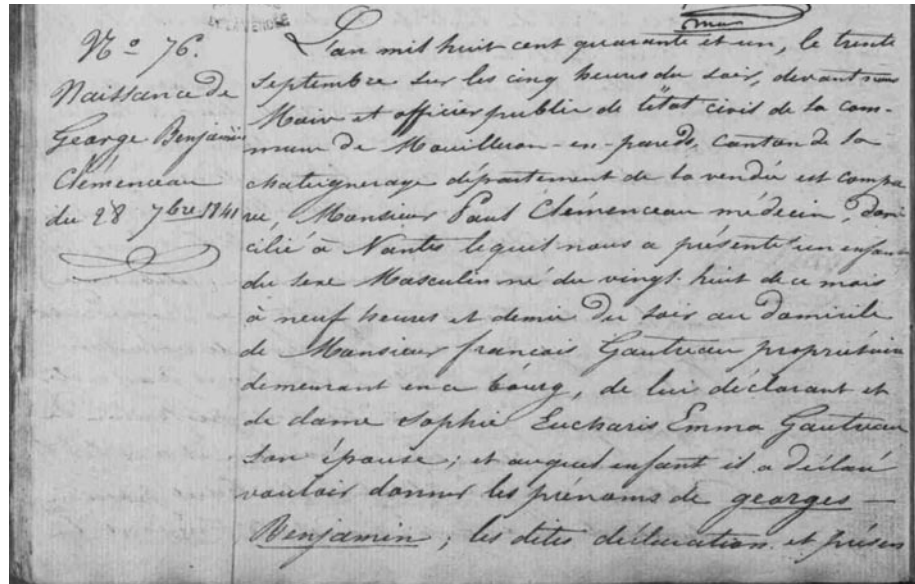 N° 76.
Naissance de
George Benjamin
Clémenceau
du 28 7bre 1841
L'an mil huit cent quarante et un, le trente
septembre sur les cinq heures du soir, devant nous
Maire et officier public de l'état civil de la com-
mune de Mouilleron-en-pareds, canton de la
chateigneraye département de la vendée est compa
ru, Monsieur Paul Clémenceau médecin, domi
cilié à Nantes lequel nous a présenté un enfant
du sexe Masculin né du vingt huit de ce mois
à neuf heures et demie du soir au domicile
de Monsieur francois Gautreau propriétaire
demeurant en ce bourg, de lui déclarant et
de dame Sophie Eucharis Emma Gautreau
son épouse; et auquel enfant il a déclaré
vouloir donner les prénoms de georges -
Benjamin; les dites déclaration et présen